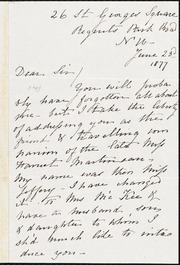 26 St Georges Square
Regents Park Road
N W-
June 23d
1877
Dear Sir/
You will proba
bly have forgotten all about
me - but I take the liberty
of addressing you as the
friend, & travelling com
panion of the late Miss
Harriet Martineau.
My name was then Miss
Jeffery - I have changed
it to Mrs Mc Kee &
have a husband, sons
& daughters to whom I
sh'd much like to intro
duce you -